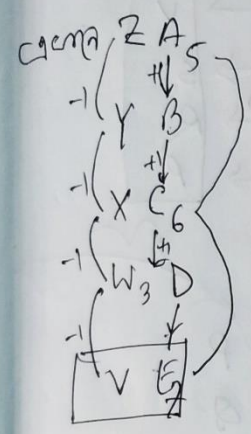 Z A 5
-1 +1
Y B
-1 +1
X C 6
-1 +1
W 3 D
-1
V E 7